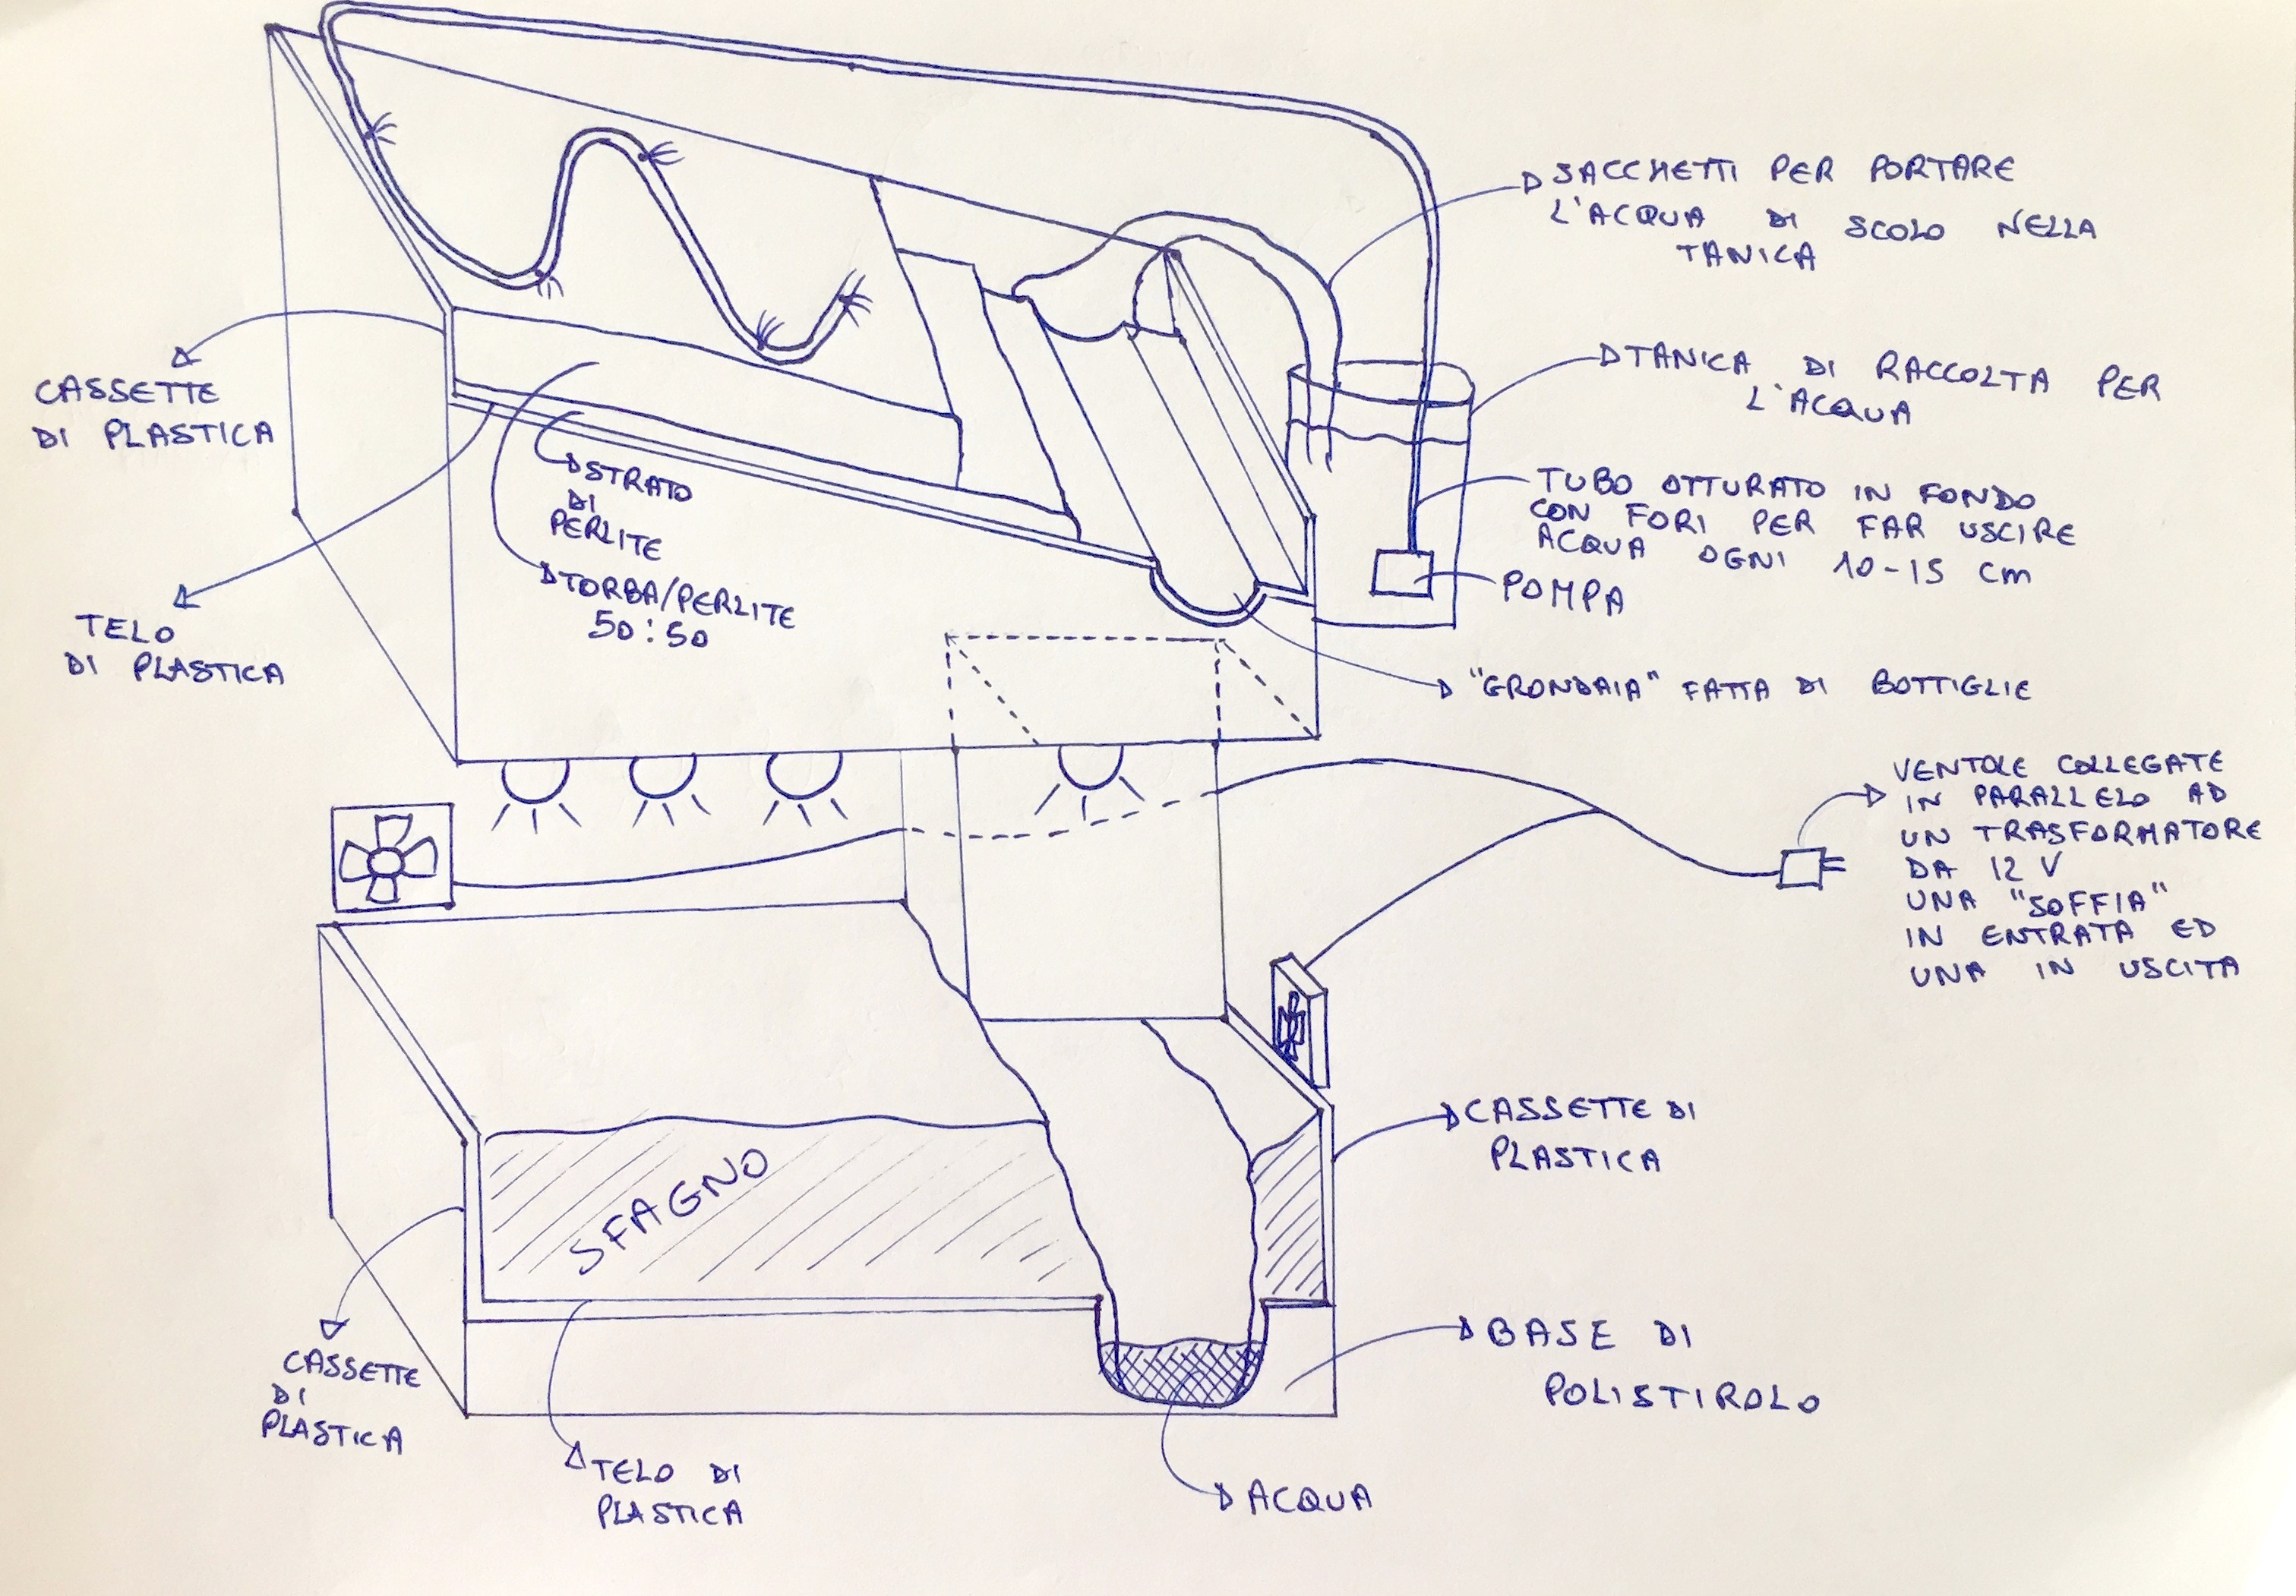 SACCHETTI PER PORTARE
L'ACQUA DI SCOLO NELLA
TANICA
TANICA DI RACCOLTA PER
L'ACQUA
CASSETTE
DI PLASTICA
STRATO
DI
PERLITE
TUBO OTTURATO IN FONDO
CON FORI PER FAR USCIRE
ACQUA OGNI 10-15 cm
POMPA
TORBA/PERLITE
50:50
TELO
DI PLASTICA
"GRONDAIA" FATTA DI BOTTIGLIE
VENTOLE COLLEGATE
IN PARALLELO AD
UN TRASFORMATORE
DA 12 V
UNA "SOFFIA"
IN ENTRATA ED
UNA IN USCITA
CASSETTE DI
PLASTICA
SFAGNO
CASSETTE
DI
PLASTICA
BASE DI
POLISTIROLO
TELO DI
PLASTICA
ACQUA